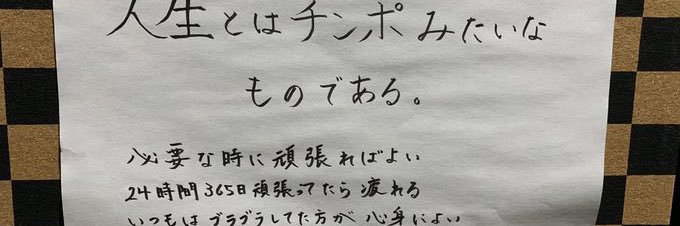 人生とはチンポみたいな
ものである。
必要な時に頑張ればよい
24時間365日頑張ってたら疲れる
いつもはブラブラしてた方が心身によい